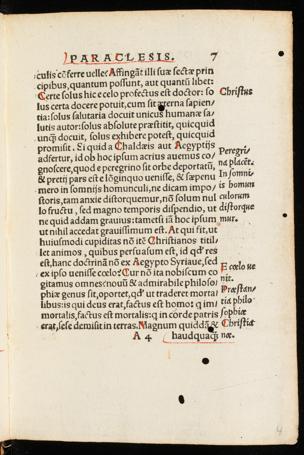 PARACLESIS. 7
culis cōferre uelle: Affingāt illi suæ sectæ prin
cipibus, quantum possunt, aut quantū libet:
Certe solus hic e celo profectus est doctor: so
lus certa docere potuit, cum sit æterna sapien/
tia: solus salutaria docuit unicus humanæ sa/
lutis autor: solus absolute præstitit, quicquid
unq̄ docuit, solus exhibere potest, quicquid
promisit. Ei quid a Chaldæis aut Aegyptijs
adfertur, id ob hoc ipsum acrius auemus co/
gnoscere, quod e peregrino sit orbe deportatū,
& pretij pars est e lōginquo uenisse, & sæpenu
mero in somnijs homunculi, ne dicam impo/
storis, tam anxie distorquemur, nō solum nul
lo fructu, sed magno temporis dispendio, ut
ne quid addam grauius: tametsi iā hoc ipsum
ut nihil accedat grauissimum est. At qui fit, ut
huiusmodi cupiditas nō itē Christianos titil/
let animos, quibus persuasum est, id qd' res
est, hanc doctrinā nō ex Aegypto Syriaue, sed
ex ipso uenisse cœlo? Cur nō ita nobiscum co
gitamus omnes: nouū & admirabile philoso/
phiæ genus sit, oportet, qd' ut traderet morta
libus: is qui deus erat, factus est homo: q̄ im/
mortalis, factus est mortalis: q̄ in corde patris
erat, sese demisit in terras. Magnum quiddā &
A 4 haudquaq̄
Christus
Peregri/
na placēt.
In somni/
is homun
culorum
distorque
mur.
E cœlo ue
nit.
Præstan/
tia philo
sophiæ
Christia
næ.
4